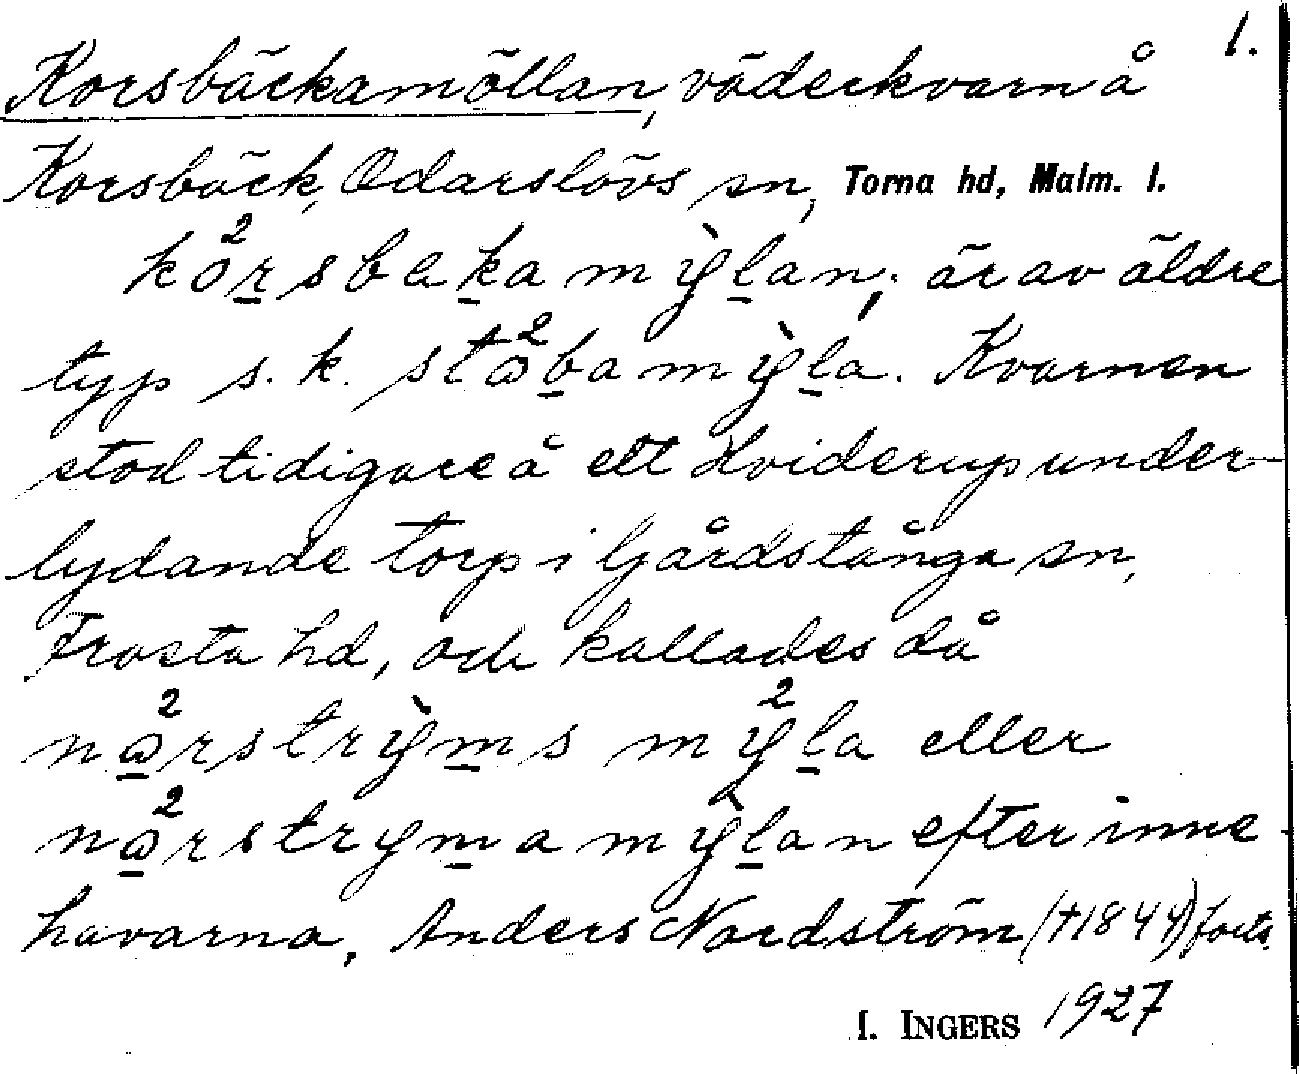 1.
Korsbäckamöllan, väderkvarn å
Korsbäck, Odarslövs sn, Torna hd, Malm. l.
kå²rsbakamỳlan; är av äldre
typ s. k. stå²bamỳla. Kvarnen
stod tidigare å ett Hviderup under-
lydande torp i Gårdstånga sn,
Frosta hd, och kallades då
nω²rstrỳms my²la eller
nω²rstrymamỳlan efter inne-
havarna, Anders Nordström (†1844) forts.
I. INGERS 1927